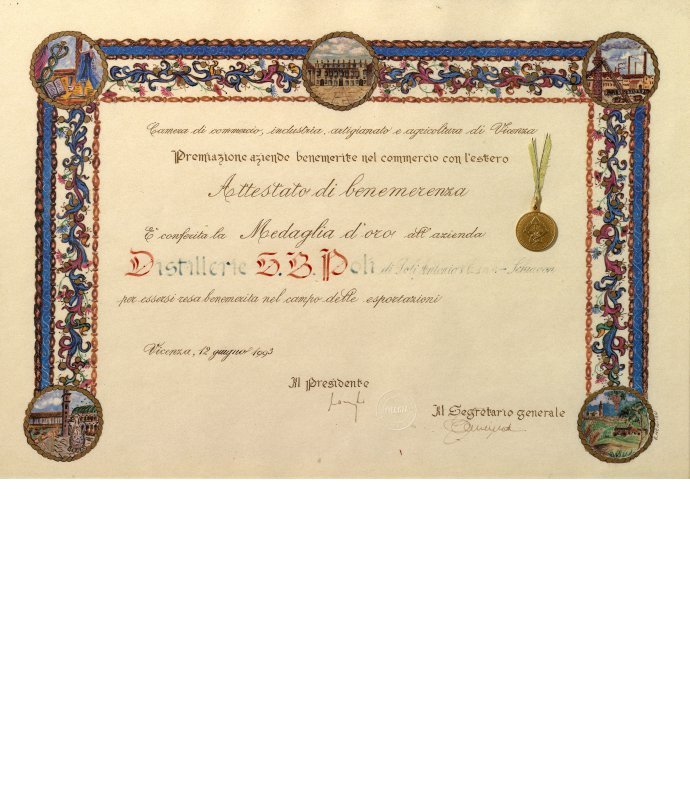 Camera di commercio, industria, artigianato e agricoltura di Vicenza
Premiazione aziende benemerite nel commercio con l'estero
Attestato di benemerenza
E' conferita la Medaglia d'oro all'azienda
Distillerie G. B. Poli di Poli Antonio
per essersi resa benemerita nel campo delle esportazioni
Vicenza, 12 giugno 1993
Il Presidente
Il Segretario generale